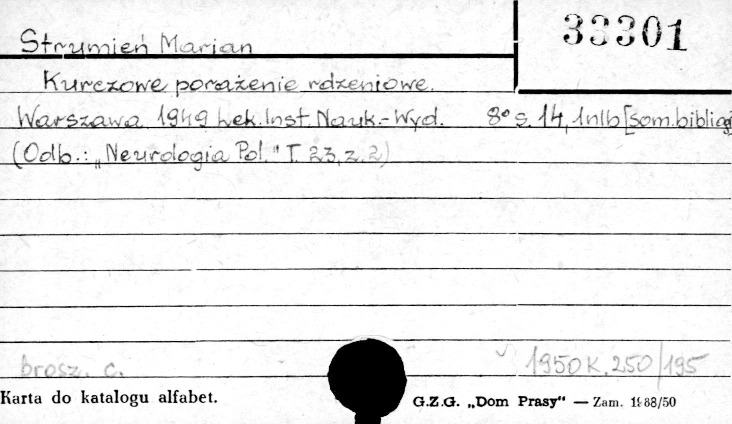 33301
Strumień Marian
Kurczowe porażenie rdzeniowe.
Warszawa 1949 Lek. Inst. Nauk.-Wyd. 8° s. 14, 1nlb [som. bibliog
(Odb.: „Neurologia Pol." T. 23, z. 2)
brosz. c. 1950 K. 250/195
Karta do katalogu alfabet. G.Z.G. „Dom Prasy" — Zam. 1988/50